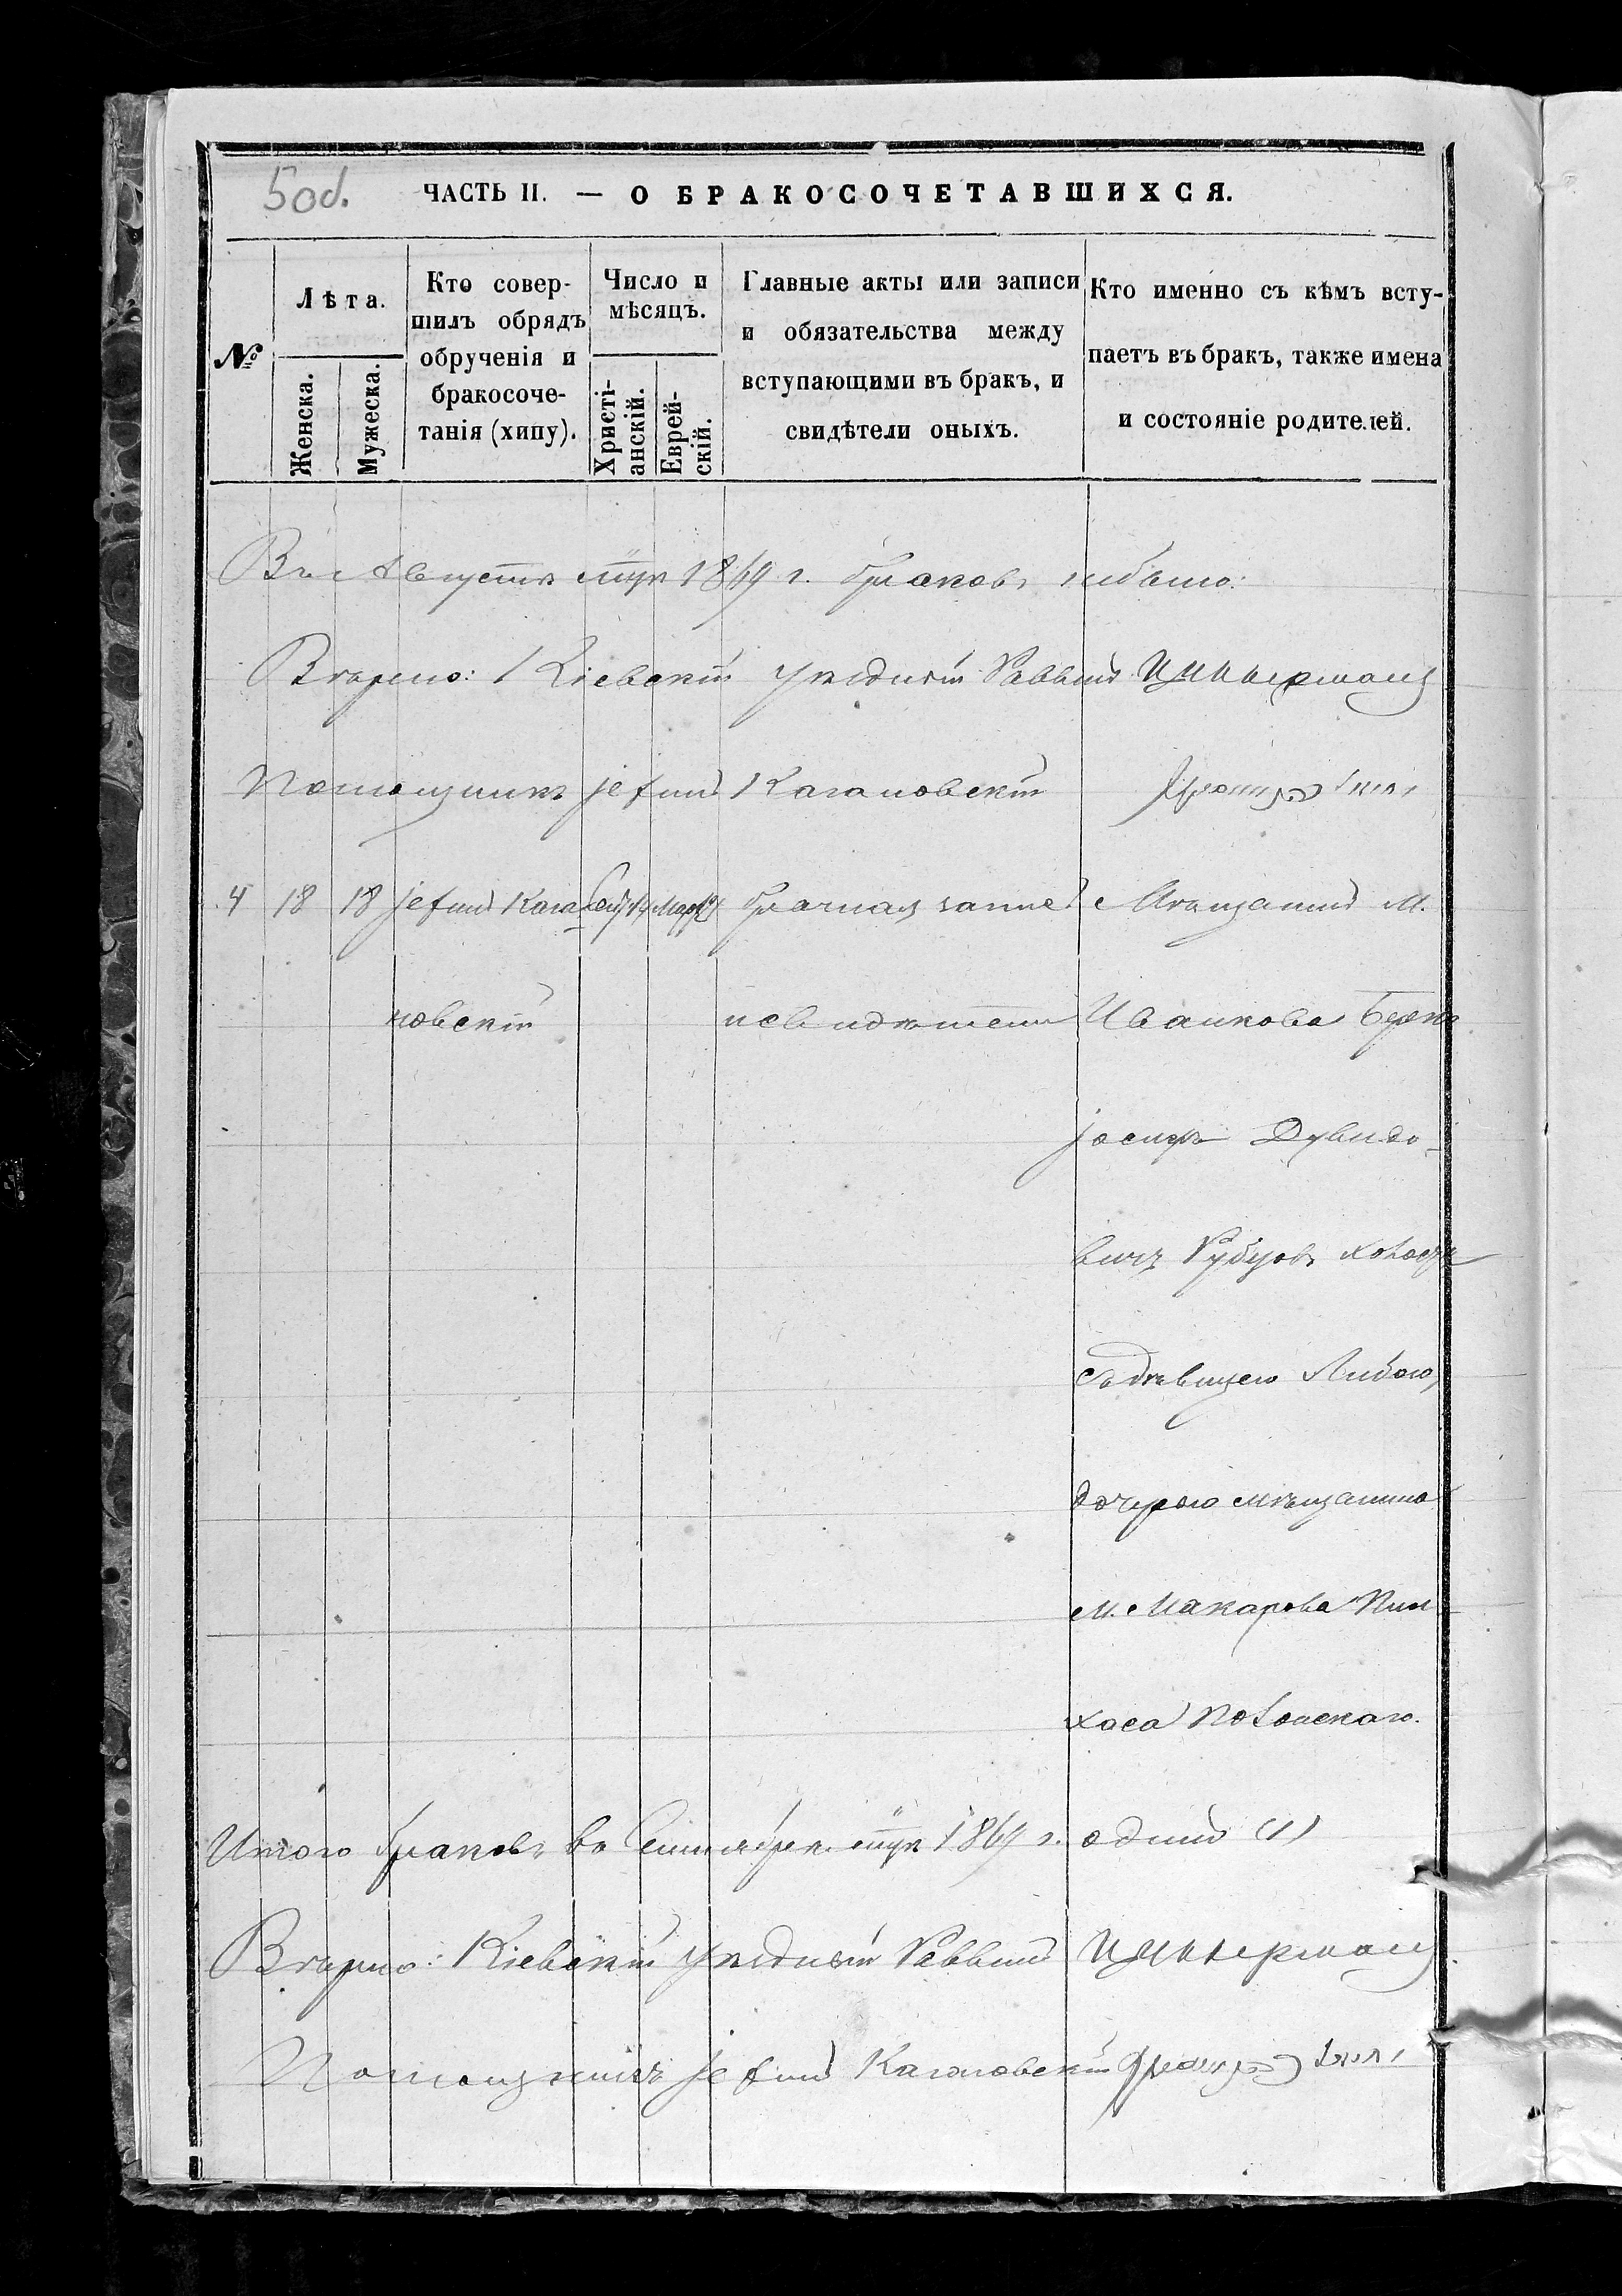 5 об.
ЧАСТЬ II. — О БРАКОСОЧЕТАВШИХСЯ.
№
Лѣта.
Женска.
Мужеска.
Кто совер-
шилъ обрядъ
обрученія и
бракосоче-
танія (хипу).
Число и
мѣсяцъ.
Христі-
анскій.
Еврей-
скій.
Главные акты или записи
и обязательства между
вступающими въ бракъ, и
свидѣтели оныхъ.
Кто именно съ кѣмъ всту-
паетъ въ бракъ, также имена
и состояніе родителей.
Въ Августѣ 1869 г. браковъ небыло.
Вѣрно: Кіевскій уѣздный Раввинъ Цукерманъ
Помощникъ Іехилъ Кагановскій
4 18 18 Іехилъ Кага- брачная запись Мѣщанинъ М.
новскій и свидѣтели Иванкова Берко
Іосифъ Дувидо-
вичъ Рубцовъ холостъ
съ дѣвицею Либою,
дочерью мѣщанина
м. Макарова Пин
хаса Полонскаго.
Итого браковъ въ Сентябрѣ 1869 г. одинъ (1)
Вѣрно: Кіевскій уѣздный Раввинъ Цукерманъ
Помощникъ Іехилъ Кагановскій